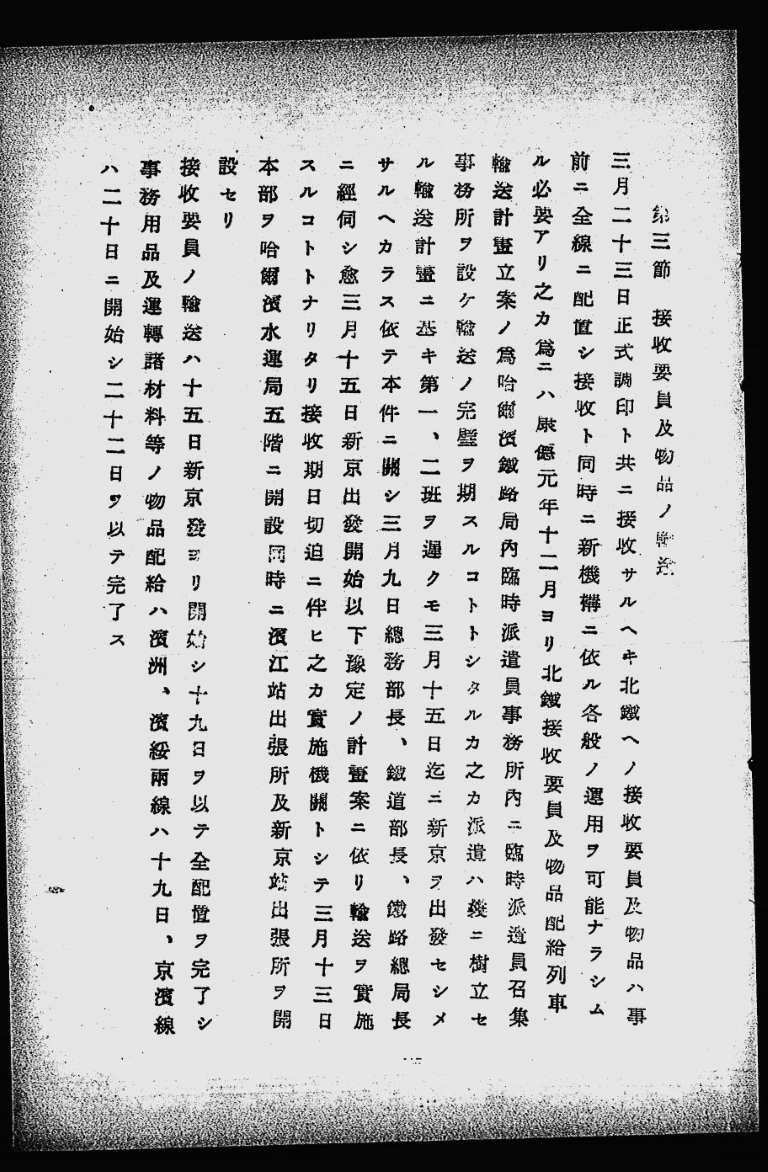 第三節　接收要員及物品ノ輸送
三月二十三日正式調印ト共ニ接收サルヘキ北鐵ヘノ接收要員及物品ハ事
前ニ全線ニ配置シ接收ト同時ニ新機構ニ依ル各般ノ運用ヲ可能ナラシム
ル必要アリ之カ爲ニハ康德元年十二月ヨリ北鐵接收要員及物品配給列車
輸送計畫立案ノ爲哈爾濱鐵路局內臨時派遣員事務所內ニ臨時派遣員召集
事務所ヲ設ケ輸送ノ完璧ヲ期スルコトトシタルカ之カ派遣ハ曩ニ樹立セ
ル輸送計畫ニ基キ第一、二班ヲ遲クモ三月十五日迄ニ新京ヲ出發セシメ
サルヘカラス依テ本件ニ關シ三月九日總務部長、鐵道部長、鐵路總局長
ニ經伺シ愈三月十五日新京出發開始以下豫定ノ計畫案ニ依リ輸送ヲ實施
スルコトトナリタリ接收期日切迫ニ伴ヒ之カ實施機關トシテ三月十三日
本部ヲ哈爾濱水運局五階ニ開設同時ニ濱江站出張所及新京站出張所ヲ開
設セリ
接收要員ノ輸送ハ十五日新京發ヨリ開始シ十九日ヲ以テ全配置ヲ完了シ
事務用品及運轉諸材料等ノ物品配給ハ濱洲、濱綏兩線ハ十九日、京濱線
ハ二十日ニ開始シ二十二日ヲ以テ完了ス